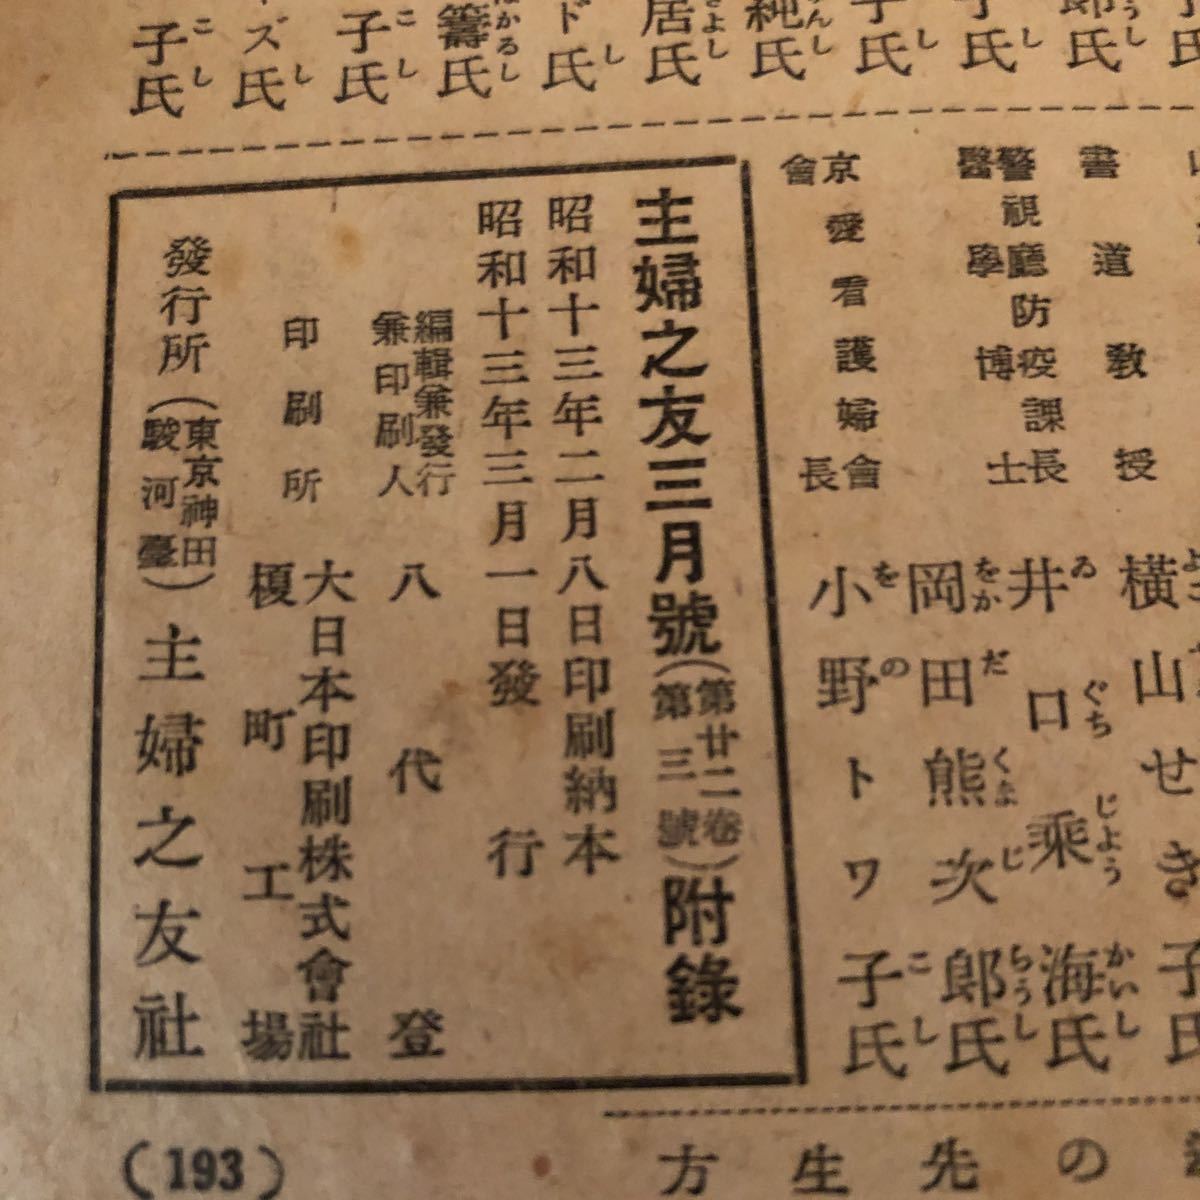 郎氏
子氏
子氏
純氏
居氏
ド氏
籌氏
子氏
ズ氏
子氏
書道教授 横山せき子氏
警視廳防疫課長
醫學博士
井口乘海氏
ゐぐちじようかいし
岡田熊次郎氏
をかだくまじらうし
京愛看護婦會
會長
小野トワ子氏
をのこし
主婦之友三月號(第廿二卷第三號)附錄
昭和十三年二月八日印刷納本
昭和十三年三月一日發行
編輯兼發行
兼印刷人
八代登
印刷所
大日本印刷株式會社
榎町工場
發行所(東京神田駿河臺)主婦之友社
の先生方
(193)